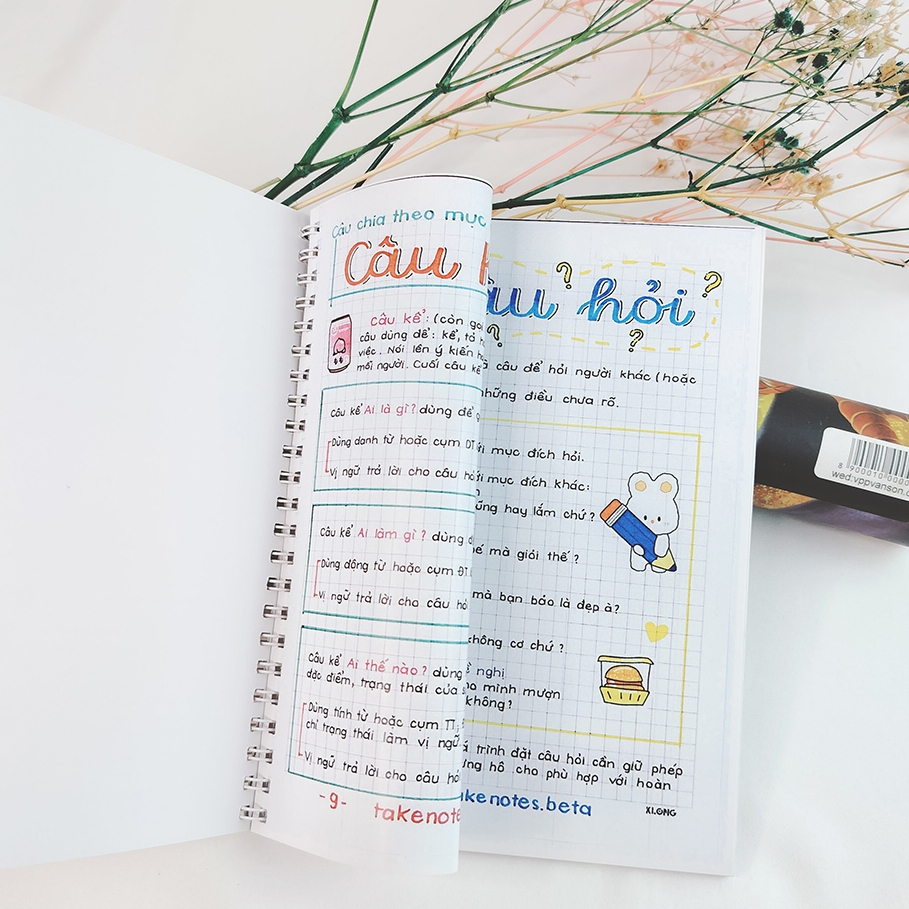 Câu chia theo mục
Câu
Câu kể: (còn gọ
câu dùng để: kể, tả
việc. Nói lên ý kiến
mỗi người. Cuối câu kể
Câu kể Ai là gì? dùng để
Dùng danh từ hoặc cụm DT
Vị ngữ trả lời cho câu hỏ
Câu kể Ai làm gì? dùng
Dùng động từ hoặc cụm ĐT
Vị ngữ trả lời cho câu hỏ
Câu kể Ai thế nào? dùng
đặc điểm, trạng thái của
Dùng tính từ hoặc cụm TT
chỉ trạng thái làm vị ngữ
Vị ngữ trả lời cho câu hỏ
-9-
takenote
âu hỏi
câu để hỏi người khác (hoặc
những điều chưa rõ.
mục đích hỏi.
mục đích khác:
cũng hay lắm chứ?
mà giỏi thế?
mà bạn bảo là đẹp à?
không cơ chứ?
nghị
mình mượn
không?
trình đặt câu hỏi cần giữ phép
hô cho phù hợp với hoàn
akenotes.beta
XI.ONG
wed:vppvanson.